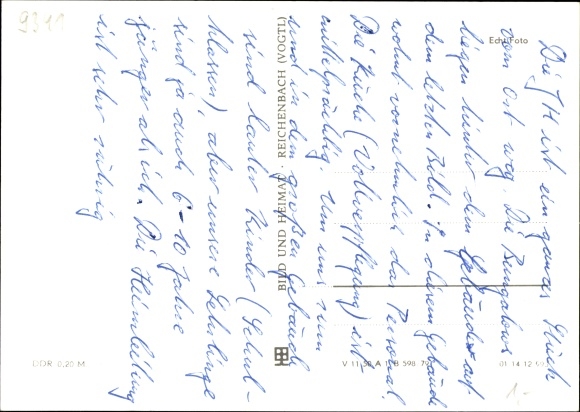 Die JH ist ein ganzes Stück
vom Ort weg. Die Bungalows
liegen hinter dem Gebäude auf
dem letzten Bild. In diesem Gebäude
wohnt vornehmlich das Personal.
Die Küche (Vollverpflegung) ist
mittelmäßig. Um uns rum
und in dem großen Gebäude
sind lauter Kinder (Schul-
klassen), aber unsere Lehrlinge
sind ja auch 6-10 Jahre
jünger als ich. Die Heimleitung
ist sehr rührig
9311
Echt Foto
BILD UND HEIMAT · REICHENBACH (VOGTL)
DDR 0,20 M
V 11 50 A 1/B 598 79
01 14 12
1,-